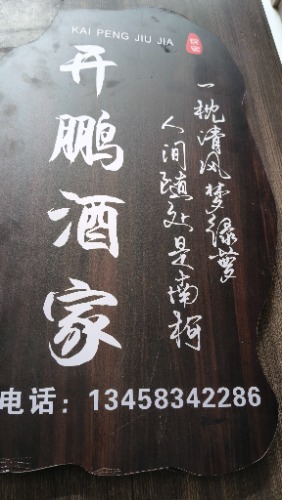 KAI PENG JIU JIA
开鹏酒家
一枕清风梦绿萝
人间随处是南柯
电话：13458342286